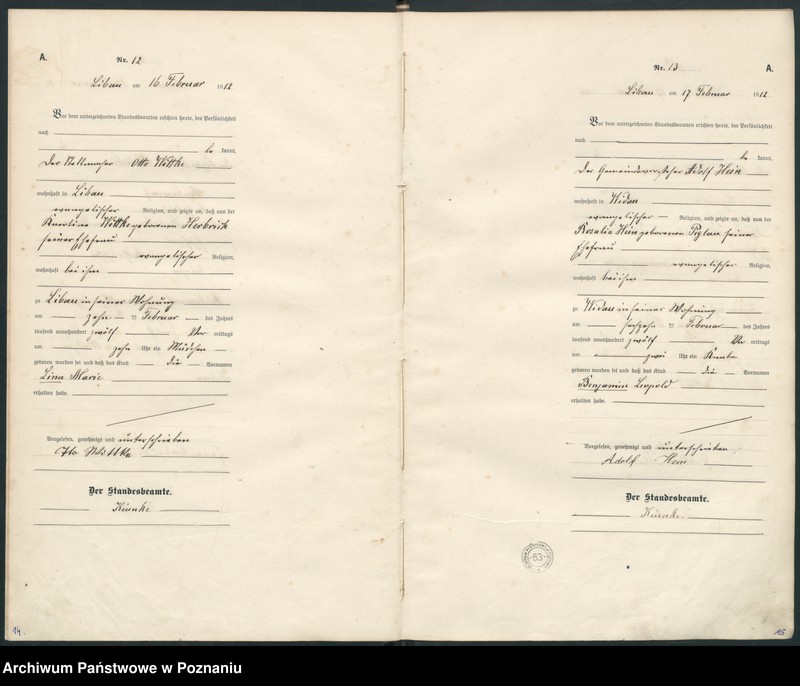 A.
Nr. 12
Liban am 16 Februar 1912
Vor dem unterzeichneten Standesbeamten erschien heute, der Persönlichkeit
nach
be kannt,
Der Otto Wettke
wohnhaft in Liban
evangelischer Religion, und zeigte an, daß von der
Karoline Wettke geborenen Herbrich
seiner Ehefrau
evangelischer Religion,
wohnhaft bei ihm
zu Liban in seiner Wohnung
am zehn ten Februar des Jahres
tausend neunhundert zwölf Vor mittags
um zehn Uhr ein Mädchen
geboren worden sei und daß das Kind die Vornamen
Lina Marie
erhalten habe.
Vorgelesen, genehmigt und unterschrieben
Otto
Der Standesbeamte.
14.
Nr. 13
A.
Liban am 17 Februar 1912
Vor dem unterzeichneten Standesbeamten erschien heute, der Persönlichkeit
nach
be kannt,
Der Gemeindevorsteher Adolf Hein
wohnhaft in Widau
evangelischer Religion, und zeigte an, daß von der
Rosalie Hein geborenen seiner
Ehefrau
evangelischer Religion,
wohnhaft bei ihm
zu Widau in seiner Wohnung
am sechzehn ten Februar des Jahres
tausend neunhundert zwölf Vor mittags
um zwei Uhr ein Knabe
geboren worden sei und daß das Kind die Vornamen
Benjamin Leopold
erhalten habe.
Vorgelesen, genehmigt und unterschrieben
Adolf Hein
Der Standesbeamte.
53
15
Archiwum Państwowe w Poznaniu